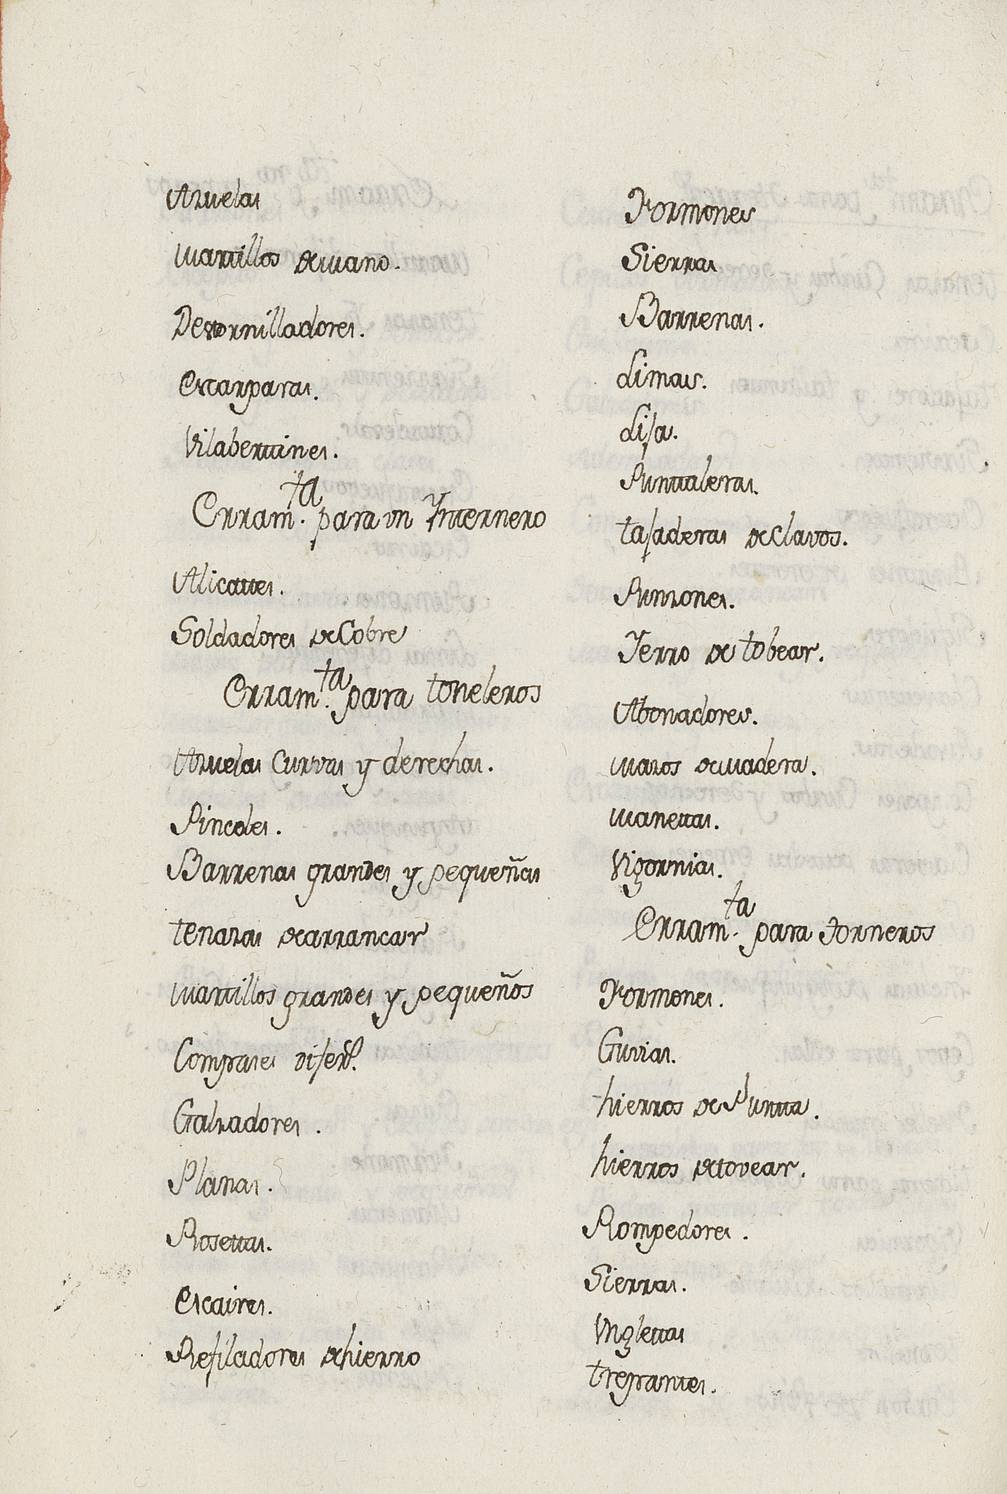 Azuelas
Martillos de mano.
Destornilladores.
Escarparas.
Vilabertines.
Erram.ta para un Ynternero
Alicattes.
Soldadores de Cobre
Erram.ta para toneleros
Azuelas Curvas y derechas.
Pinceles.
Barrenas grandes y pequeñas
tenazas de arrancar
Martillos grandes y pequeños
Compases difer.s
Galzadores.
Planas.
Rosettas.
Escaires.
Refiladores de hierro
Formones
Sierras
Barrenas.
Limas.
Lisa.
Punttaleras.
tajaderas de Clavos.
Punzones.
Yerro de tobear.
Abonadores.
Mazos de madera.
Manettas.
Vigornias.
Erram.ta para torneros
Formones.
Guvias.
hierros de Puntta.
hierros de tovear.
Rompedores.
Sierras.
Unglettas
trepantes.